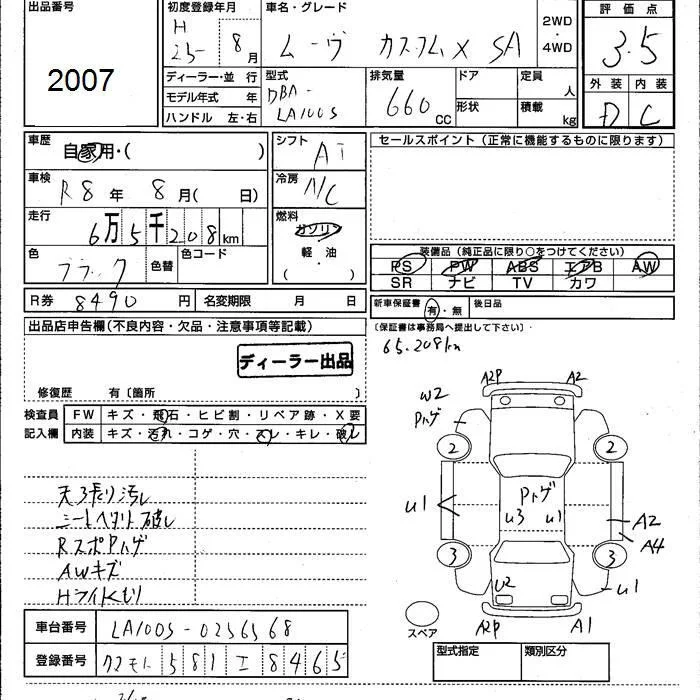 出品番号
2007
初度登録年月
H 25年 8月
車名・グレード
ムーヴ カスタムX SA
2WD
・
4WD
評価点
3.5
外装 内装
D C
ディーラー・並 行
モデル年式 年
ハンドル 左・右
型式
DBA-
LA100S
排気量
660 CC
ドア
形状
定員 人
積載 kg
車歴
自家用・( )
シフト
AT
セールスポイント(正常に機能するものに限ります)
車検
R8年 8月( 日)
冷房
A/C
走行
6万5千208km
燃料
ガソリン
軽・油
( ・ )
色
ブラック
色替
色コード
装備品(純正品に限り○をつけてください)
PS PW ABS エアB AW
SR ナビ TV カワ
R券 8490円
名変期限 月 日
新車保証書 有・無
後日品
(保証書は事務局へ提出して下さい)
65.208km
出品店申告欄(不良内容・欠品・注意事項等記載)
ディーラー出品
修復歴 有〔箇所 〕
検査員
記入欄
FW キズ・飛石・ヒビ割・リペア跡・X要
内装 キズ・汚れ・コゲ・穴・スレ・キレ・破レ
天張り汚レ
シートヘタリ 破レ
RスポPハゲ
AWキズ
Hライトくもり
A2P A2
W2
Pハゲ
2 2
Pハゲ
U1
U3 U1
A2
A4
3 3
U2
U1
スペア
A2P A1
車台番号 LA100S-0256568
登録番号 クマモト 581 エ 8465
型式指定 類別区分